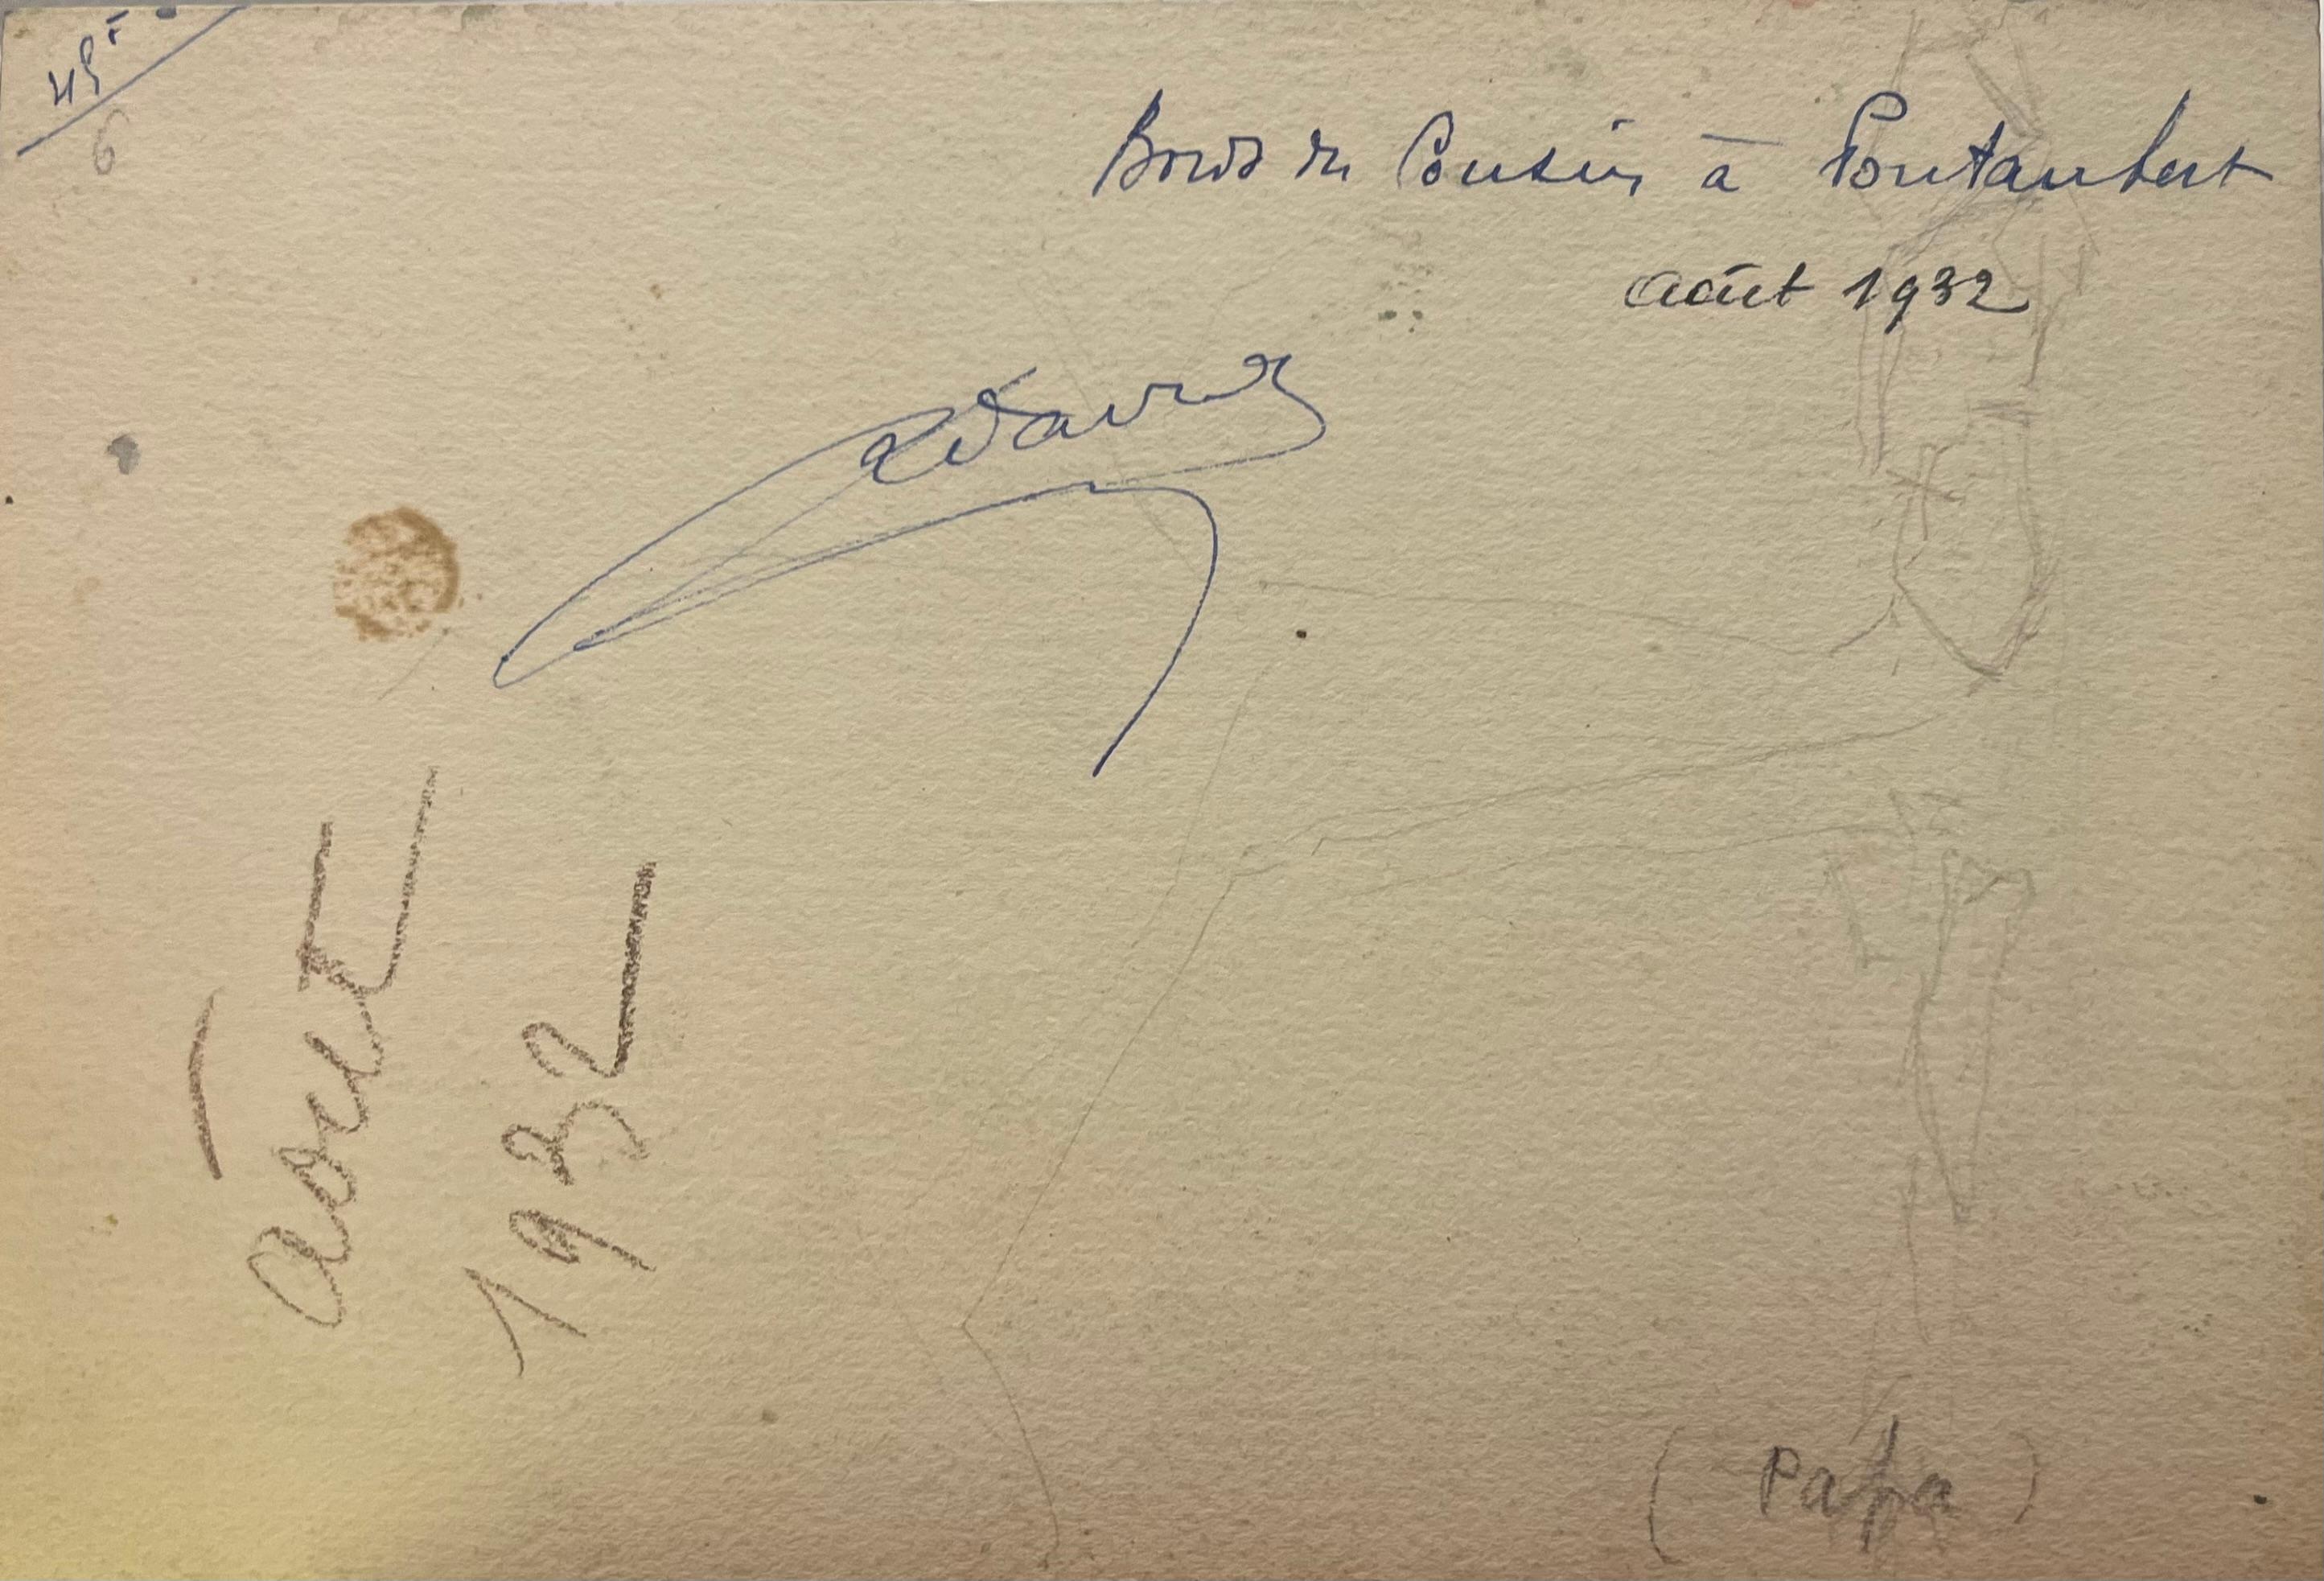 45
6
Bords du Cousin à Pontaubert
août 1932
août
1932
( Papa )